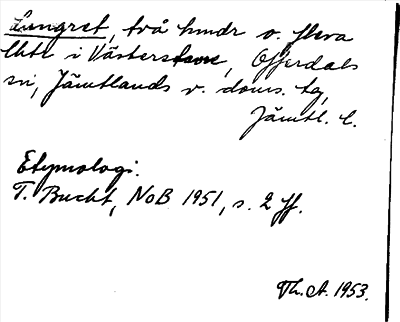 Lungret, två hmdr o. flera
lhtr i Västers, Offerdals
sn, Jämtlands v. doms. tg,
Jämtl. l.
Etymologi.
T. Bucht, NoB 1951, s. 2 ff.
Th. A. 1953.